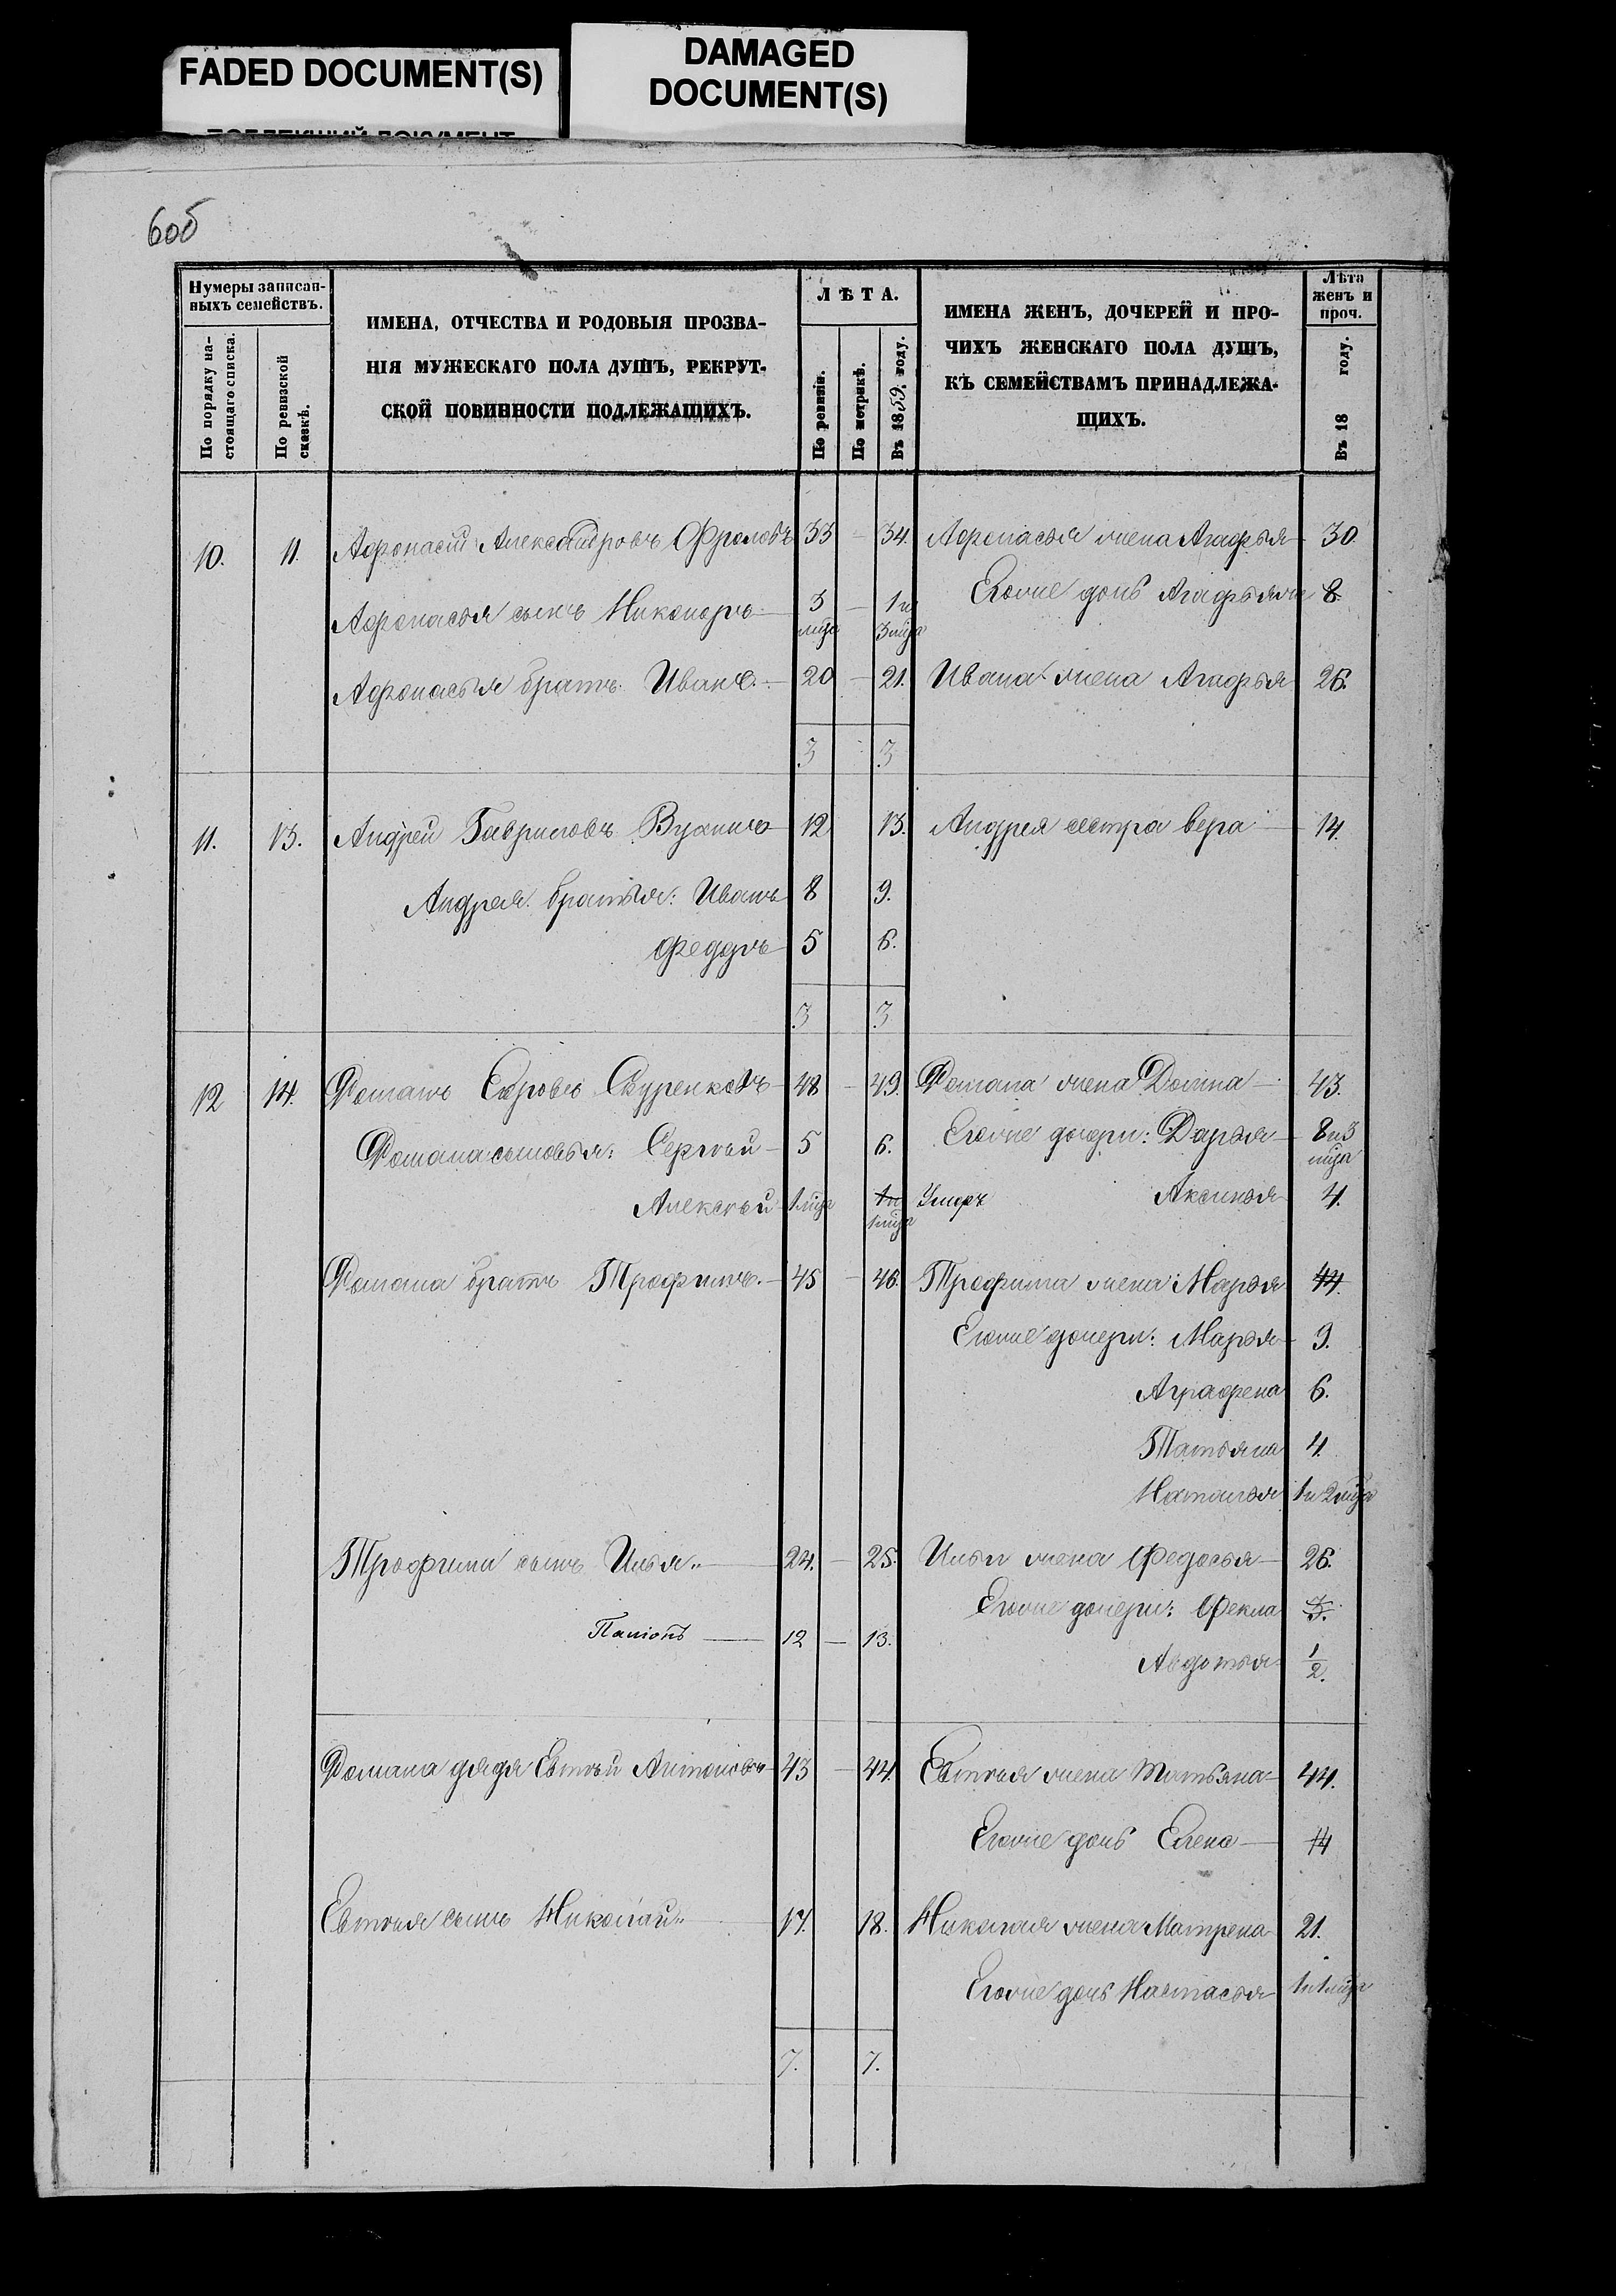 FADED DOCUMENT(S)
DAMAGED
DOCUMENT(S)
6об
Нумеры записан-
ныхъ семействъ.
По порядку на-
стоящаго списка.
По ревизской
сказкѣ.
ИМЕНА, ОТЧЕСТВА И РОДОВЫЯ ПРОЗВА-
НІЯ МУЖЕСКАГО ПОЛА ДУШЪ, РЕКРУТ-
СКОЙ ПОВИННОСТИ ПОДЛЕЖАЩИХЪ.
ЛѢТА.
По ревизіи.
По метрикѣ.
Въ 1859. году.
ИМЕНА ЖЕНЪ, ДОЧЕРЕЙ И ПРО-
ЧИХЪ ЖЕНСКАГО ПОЛА ДУШЪ,
КЪ СЕМЕЙСТВАМЪ ПРИНАДЛЕЖА-
ЩИХЪ.
Лѣта
женъ и
проч.
Въ 18 году.
10. 11. Афонасій Александровъ Фроловъ 33 — 34. Афонасья жена Агафья 30.
Егоже дочь 8.
Афонасья сынъ Никоноръ 3 мѣца — 1 и 3 мѣца
Афонасья братъ Иванъ 20 — 21. Ивана жена Агафья 26.
3 3
11. 13. Андрей Гавриловъ 12 13. Андрея сестра вера 14.
Андрея братья: Иванъ 8 9.
Федоръ 5 6.
3 3
12 14. Романъ 48 — 49. Романа жена Домна 43.
Романа сыновья: Сергѣй 5 6. Егоже дочери: Дарья 8 и 3 мѣца
Алексѣй 1 мѣца 1 и 1 мѣца Умеръ Аксинья 4.
Романа братъ Трофимъ. 45 — 46. Трофима жена Марья 44.
Егоже дочери: Марья 9.
Аграфена 6.
Татьяна 4.
Наталья 1 и 2 мѣца
Трофима сынъ Илья 24. — 25. Ильи жена Федосья 26.
Егоже дочери: Фекла 3.
12 — 13.
Авдотья 1/2.
Романа дядя Евтѣй Антоновъ 43 — 44. Евтѣя жена Татьяна 44.
Егоже дочь Елена 14
Евтѣя сынъ Николай 17. 18. Николая жена Матрена 21.
Егоже дочь Настасья 1 и 1 мѣца
7. 7.